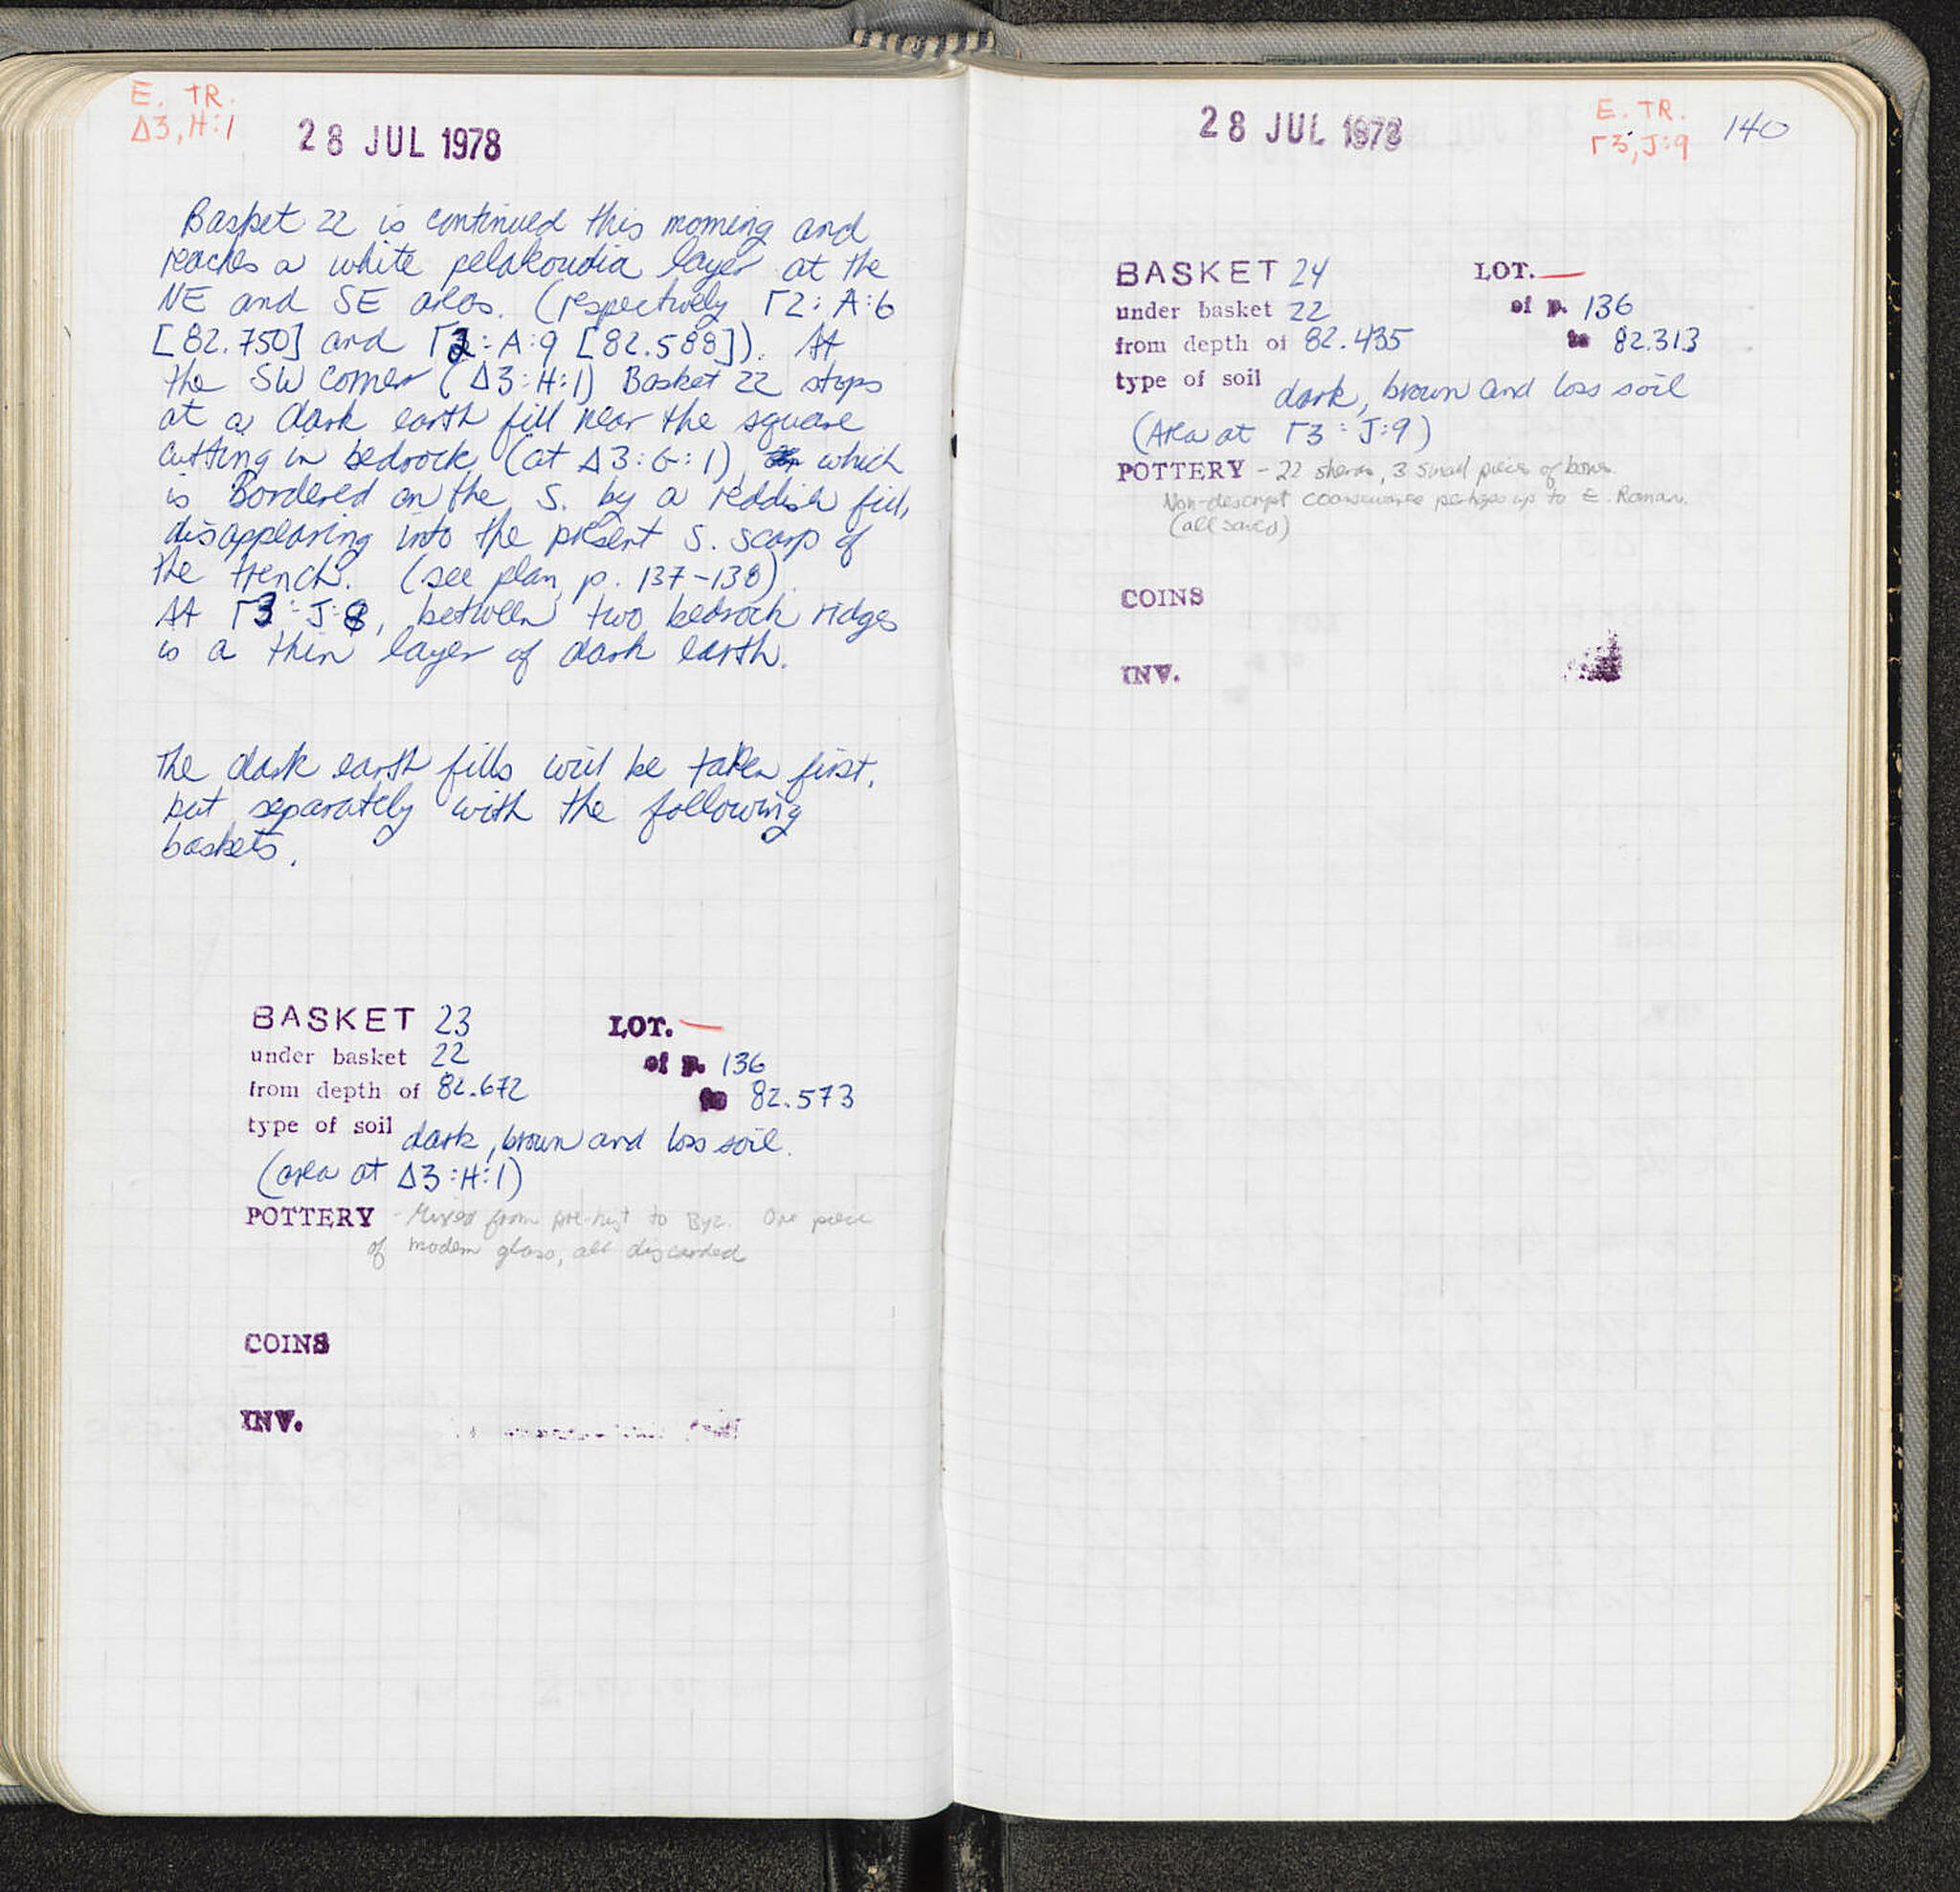 E. TR.
Δ3, H:1
28 JUL 1978
Basket 22 is continued this morning and
reaches a white pelakoudia layer at the
NE and SE areas. (respectively Γ2: A:6
[82.750] and Γ2: A:9 [82.588]). At
the SW corner (Δ3:H:1) Basket 22 stops
at a dark earth fill near the square
cutting in bedrock (at Δ3:G:1) which
is Bordered on the S. by a reddish fill,
disappearing into the present S. scarp of
the trench. (see plan, p. 137-138).
At Γ3:J:8, between two bedrock ridges
is a thin layer of dark earth.
The dark earth fills will be taken first,
but separately with the following
baskets.
BASKET 23 LOT. —
under basket 22 of p. 136
from depth of 82.672 to 82.573
type of soil dark, brown and loss soil.
(area at Δ3:H:1)
POTTERY - Mixed from pre-hist to Byz. One piece
of modern glass, all discarded
COINS
INV.
28 JUL 1978
E. TR.
Γ3, J:9
140
BASKET 24 LOT. —
under basket 22 of p. 136
from depth of 82.435 to 82.313
type of soil dark, brown and loss soil
(Area at Γ3:J:9)
POTTERY - 22 sherds, 3 small pieces of bones
Non-descript coarseware perhaps up to E. Roman.
(all saved)
COINS
INV.